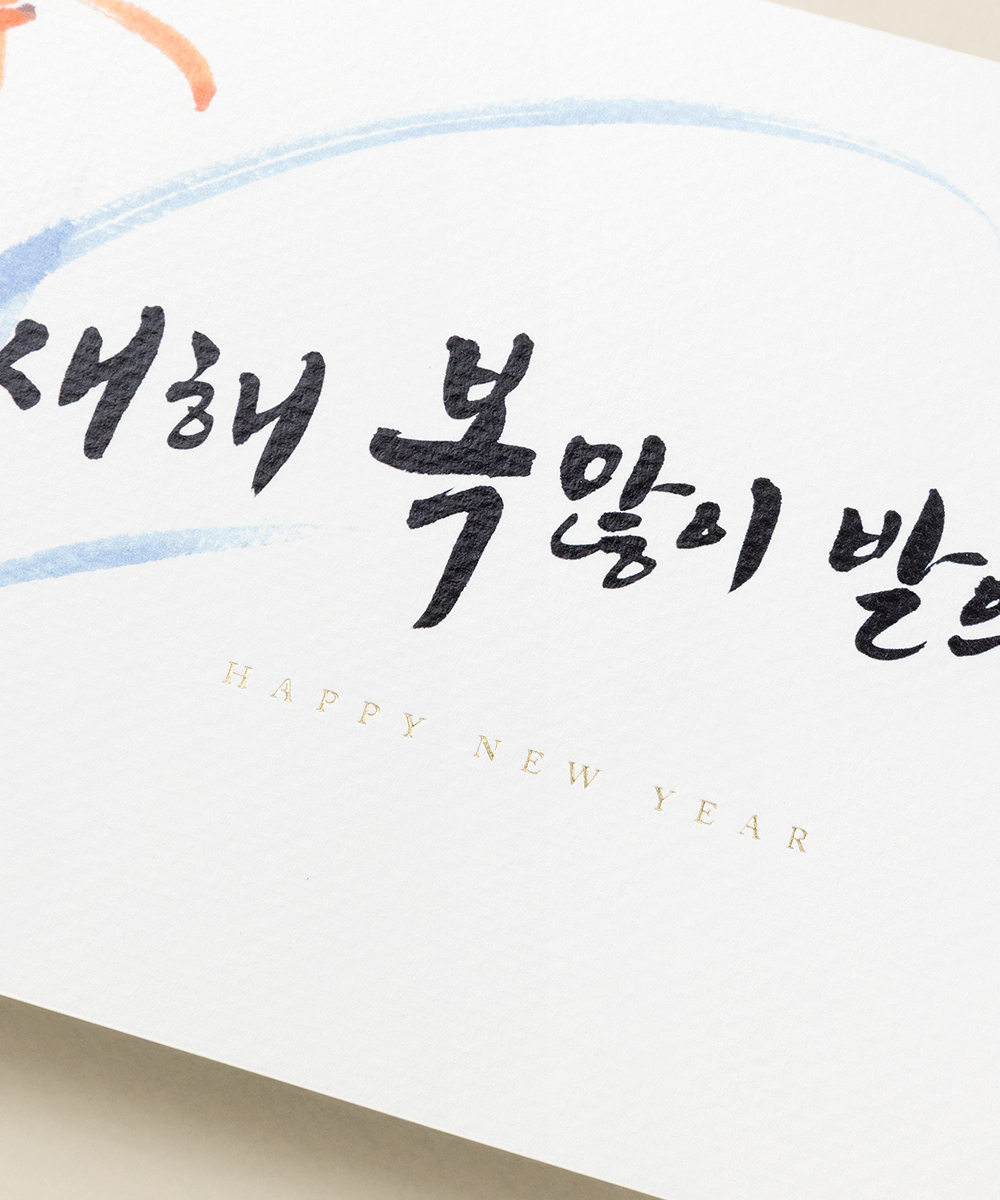 새해 복 많이 받으
HAPPY NEW YEAR